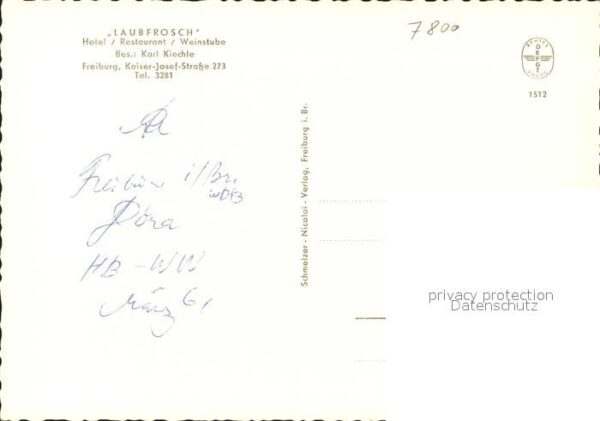 „LAUBFROSCH"
Hotel / Restaurant / Weinstube
Bes.: Karl Kiechle
Freiburg, Kaiser-Josef-Straße 273
Tel. 3281
7800
1512
Freiburg i/Br.
HB - WW
März 61
Schmelzer - Nicolai - Verlag, Freiburg i. Br.
privacy protection
Datenschutz